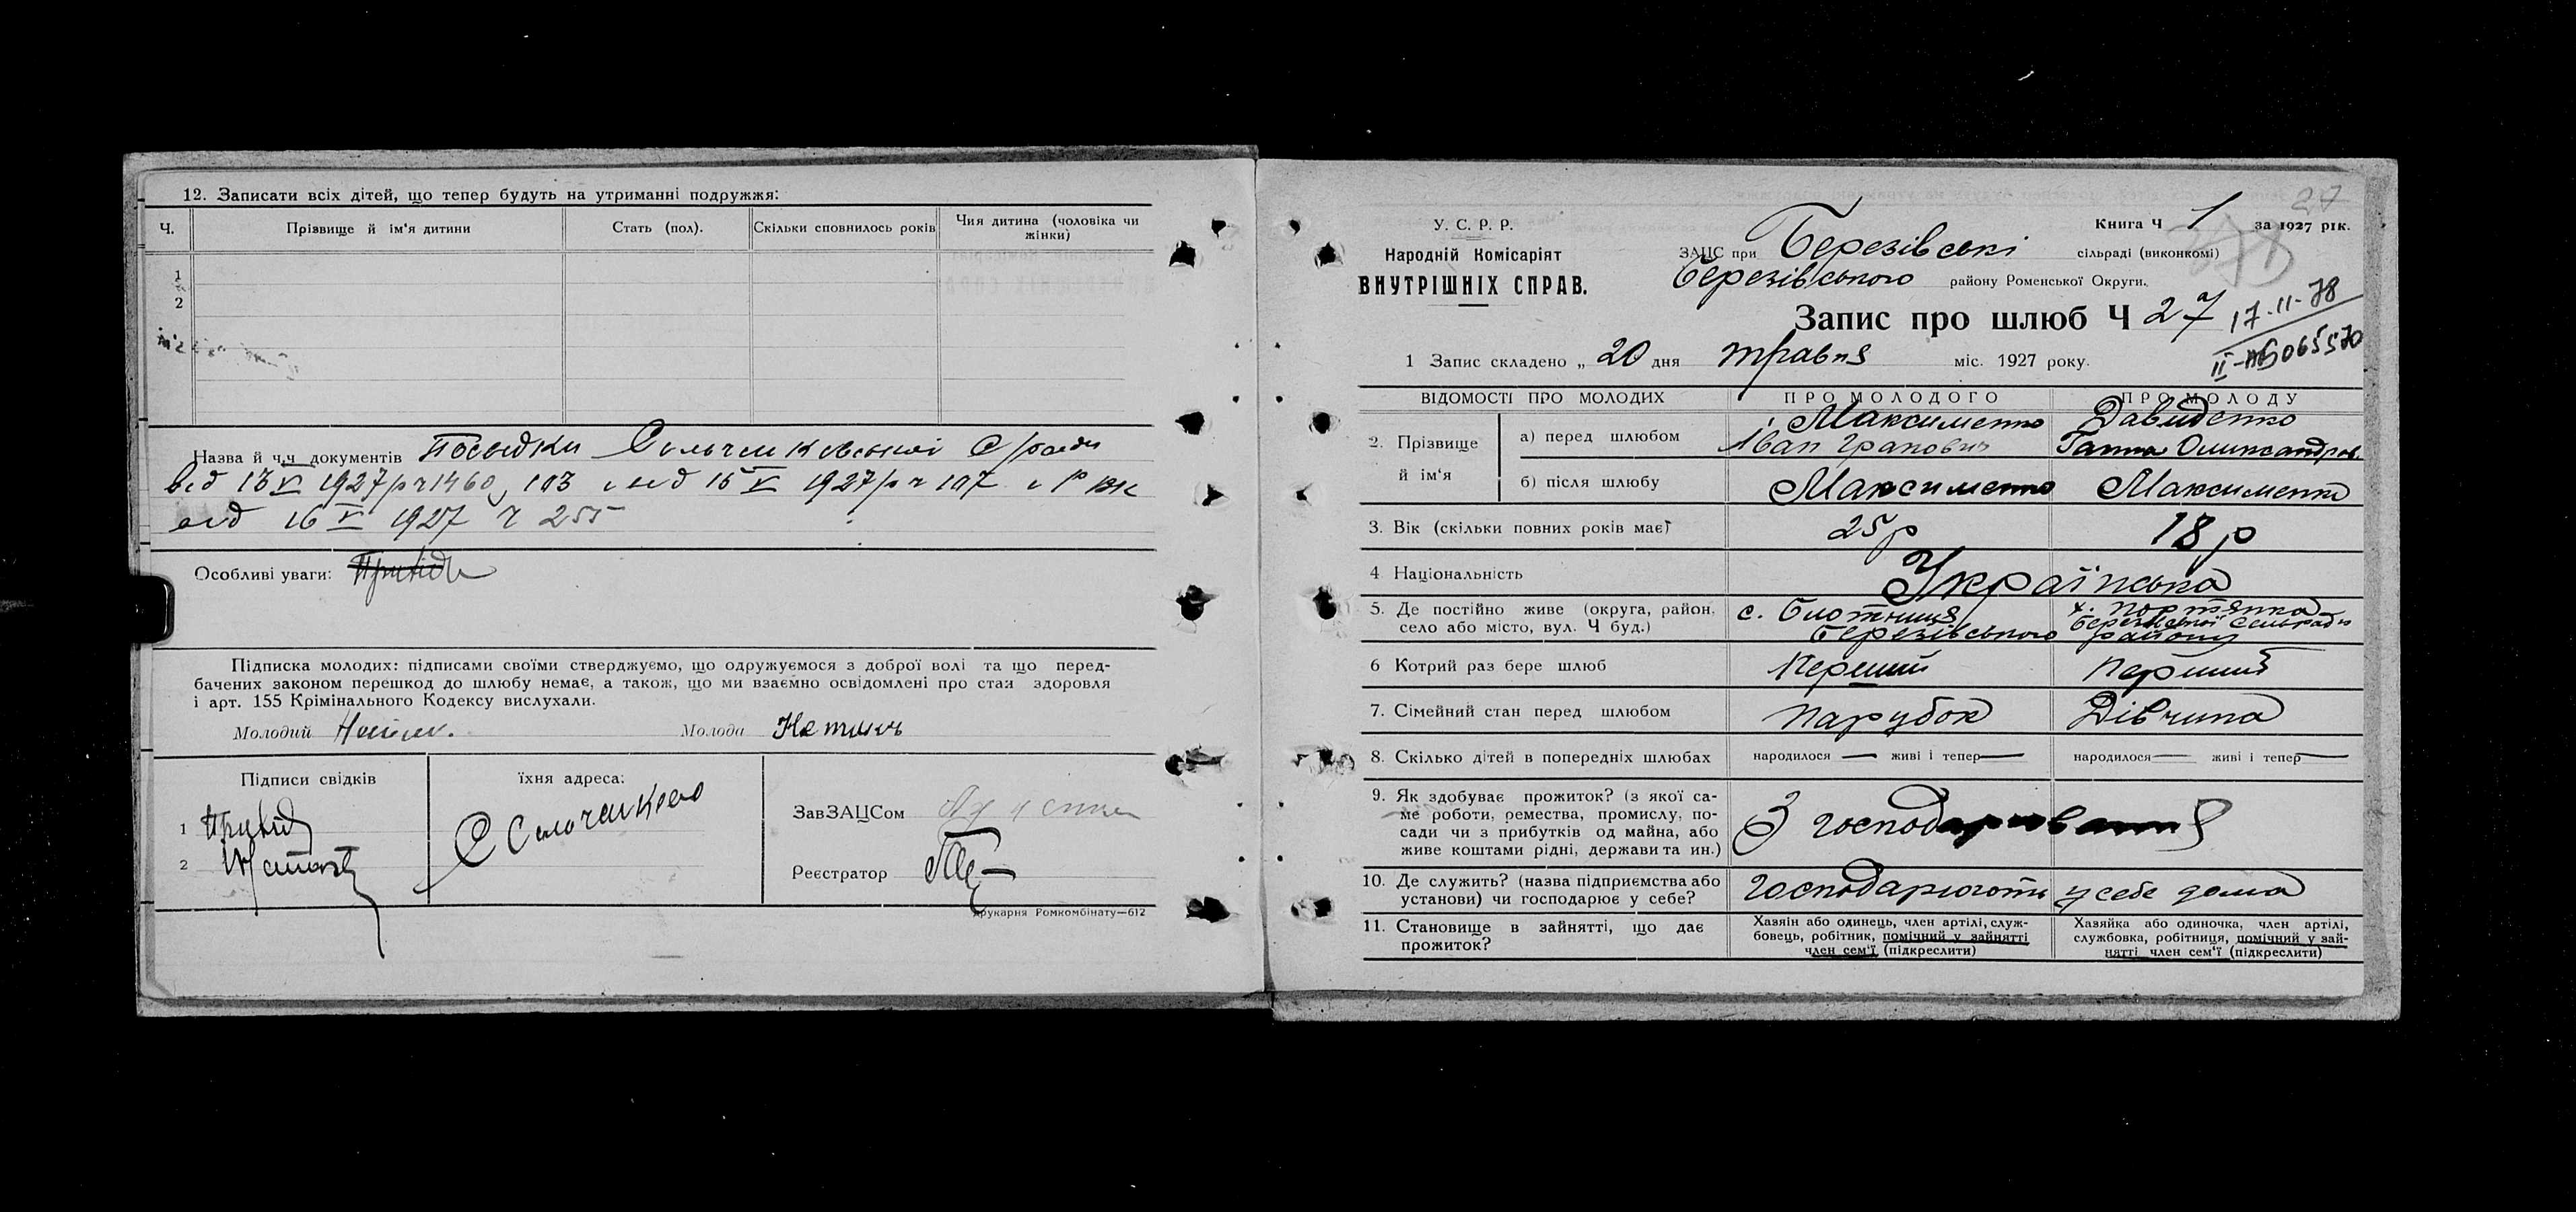 12. Записати всіх дітей, що тепер будуть на утриманні подружжя:
Ч. Прізвище й ім'я дитини Стать (пол). Скільки сповнилось років Чия дитина (чоловіка чи жінки)
1
2
Назва й ч.ч документів
від 13 V 1927 р ч 1460, 103 від 15 V 1927 р ч 107 і РВК
від 16 V 1927 ч 255
Особливі уваги:
Підписка молодих: підписами своїми стверджуємо, що одружуємося з доброї волі та що перед-
бачених законом перешкод до шлюбу немає, а також, що ми взаємно освідомлені про стан здоровля
і арт. 155 Крімінального Кодексу вислухали.
Молодий Молода
Підписи свідків їхня адреса:
1
2
ЗавЗАЦСом
Реєстратор
Друкарня Ромкомбінату—612
27
У. С. Р. Р.
Народній Комісаріят
ВНУТРІШНІХ СПРАВ.
Книга Ч 1 за 1927 рік.
ЗАЦС при Березівські сільраді (виконкомі)
Березівського району Роменської Округи.
Запис про шлюб Ч 27
17-II-78
II-АБ 065570
1 Запис складено „ 20 дня травня міс. 1927 року.
ВІДОМОСТІ ПРО МОЛОДИХ ПРО МОЛОДОГО ПРО МОЛОДУ
2. Прізвище й ім'я
а) перед шлюбом Максименко Іван Давиденко Ганна Олександров.
б) після шлюбу Максименко Максименко
3. Вік (скільки повних років має) 25 р 18 р
4 Національність Українська
5. Де постійно живе (округа, район, с. Блотниця х. Портянка
село або місто, вул. Ч буд.) Березівського Березівської Сельради району
6 Котрий раз бере шлюб Перший Перший
7. Сімейний стан перед шлюбом Парубок Дівчина
8. Скілько дітей в попередніх шлюбах народилося — живі і тепер — народилося — живі і тепер —
9. Як здобуває прожиток? (з якої са-
ме роботи, ремества, промислу, по-
сади чи з прибутків од майна, або
живе коштами рідні, держави та ин.)
З господарювання
10. Де служить? (назва підприємства або
установи) чи господарює у себе?
Господарюють у себе дома
11. Становище в зайнятті, що дає
прожиток?
Хазяїн або одинець, член артілі, служ-
бовець, робітник, помічний у зайнятті
член сем'ї (підкреслити)
Хазяйка або одиночка, член артілі,
службовка, робітниця, помічний у зай-
нятті член сем'ї (підкреслити)